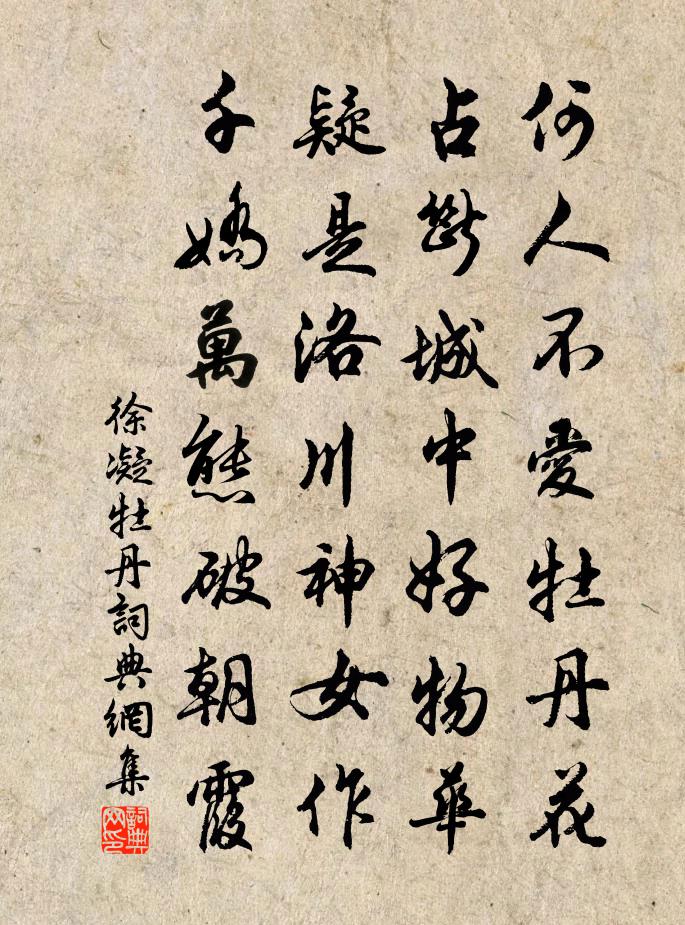 何人不愛牡丹花
占斷城中好物華
疑是洛川神女作
千嬌萬態破朝霞
徐凝牡丹詞典網集
詞典
网印